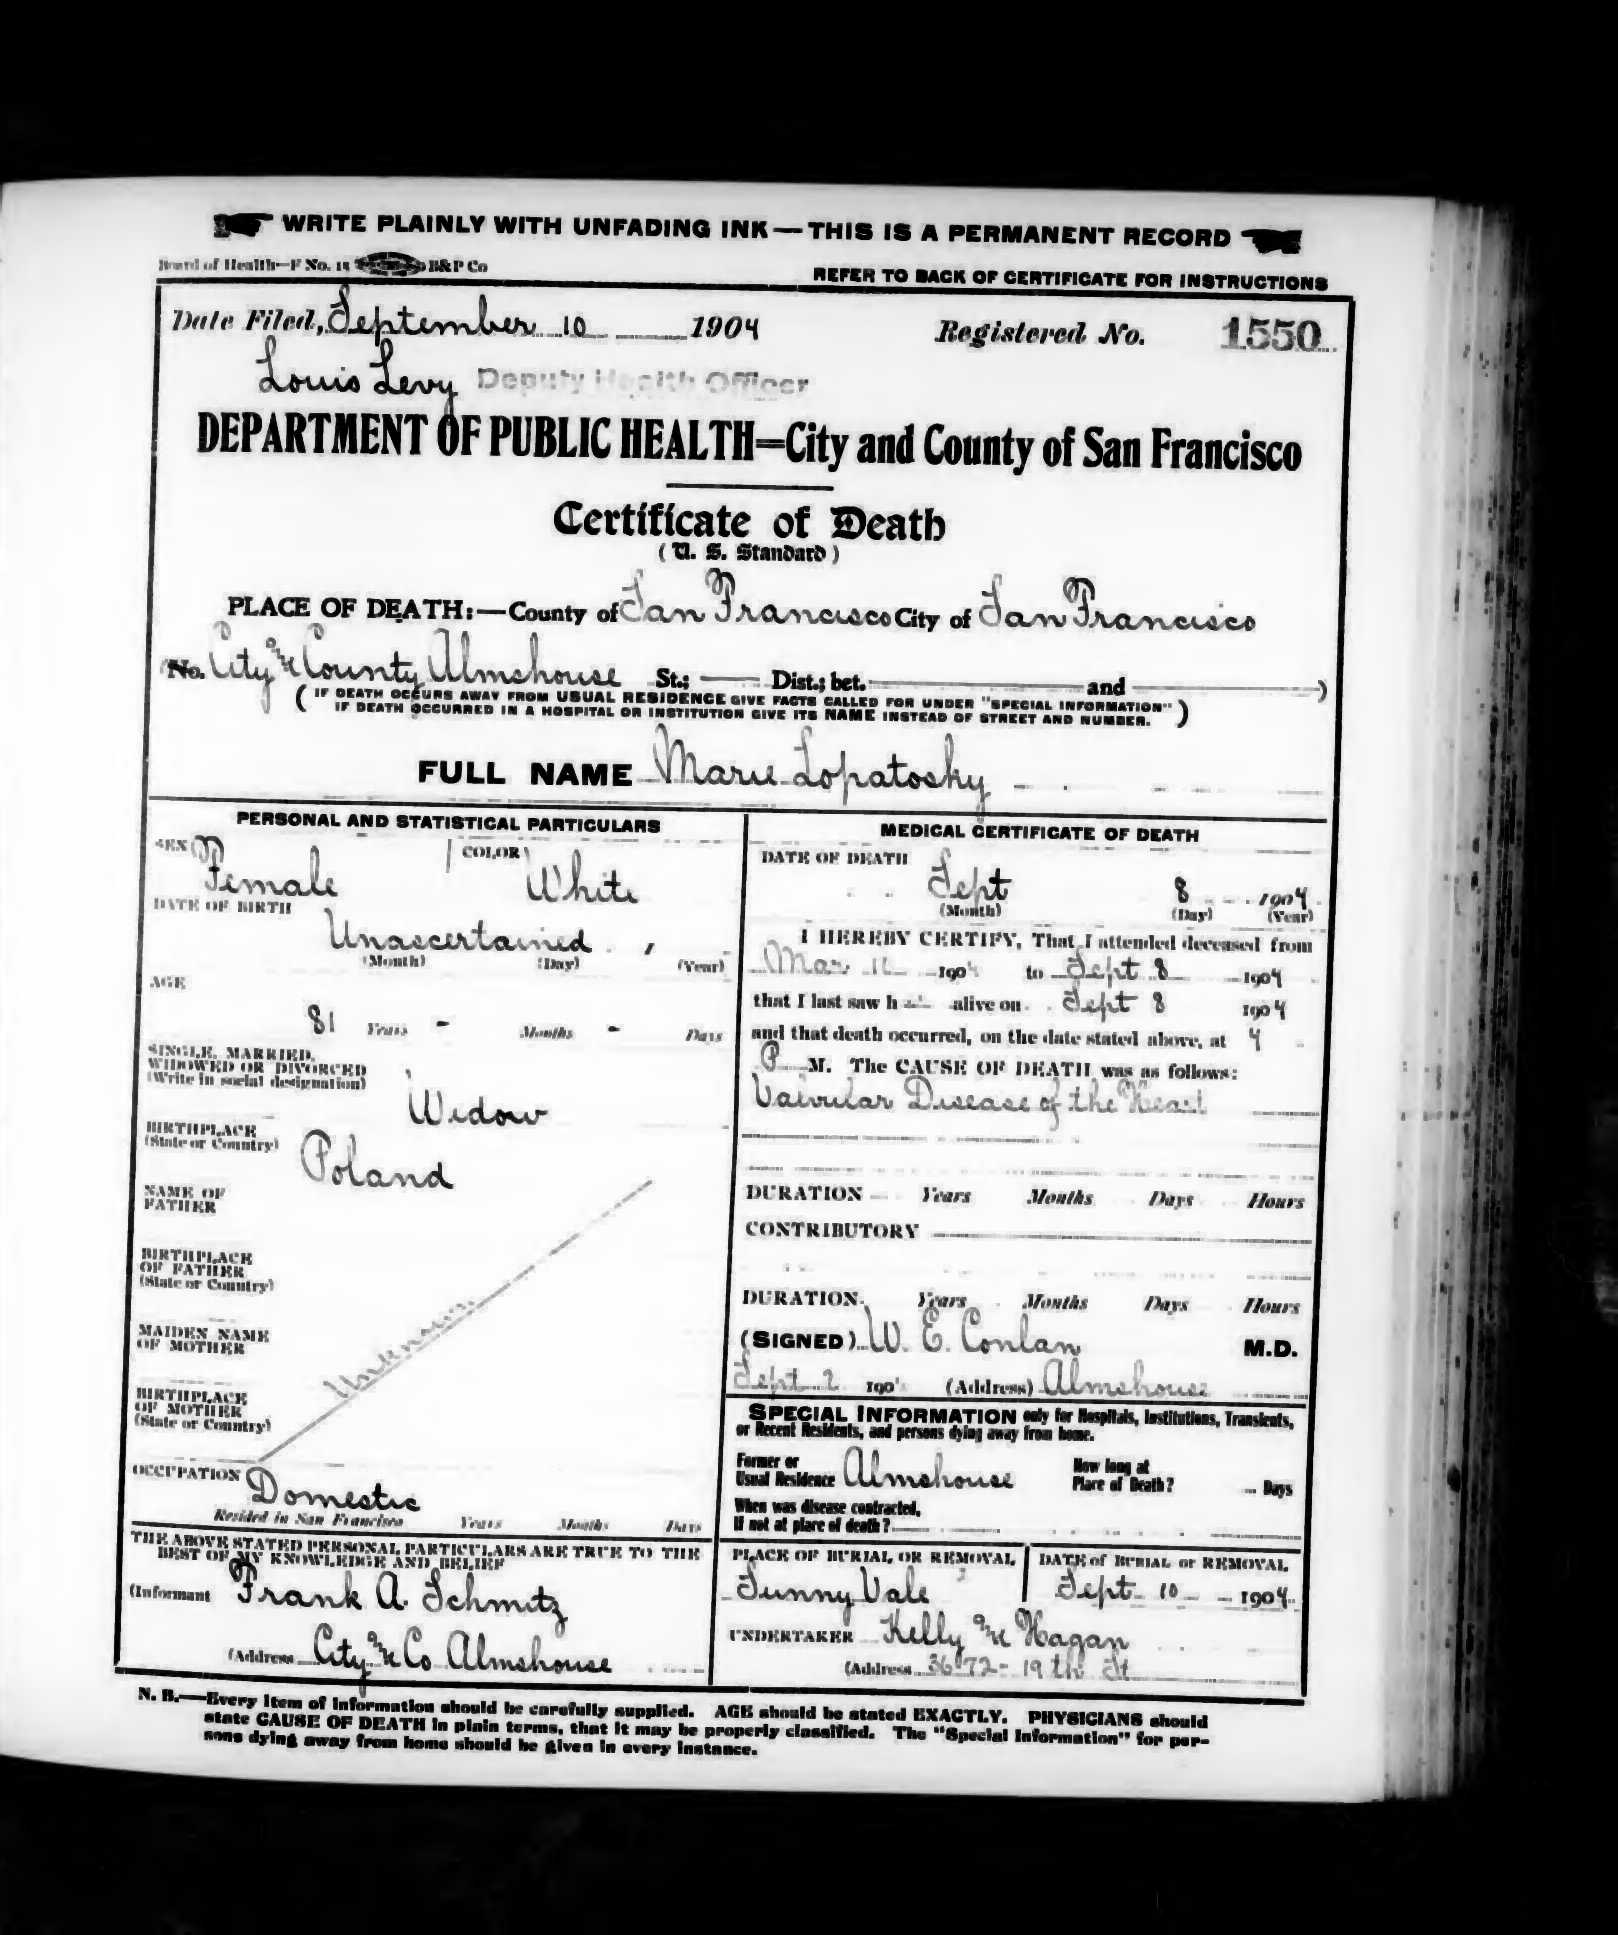 WRITE PLAINLY WITH UNFADING INK—THIS IS A PERMANENT RECORD
Board of Health—F No. 15 B&P Co
REFER TO BACK OF CERTIFICATE FOR INSTRUCTIONS
Date Filed, September 10 1904 Registered No. 1550
Louis Levy Deputy Health Officer
DEPARTMENT OF PUBLIC HEALTH=City and County of San Francisco
Certificate of Death
(U. S. Standard)
PLACE OF DEATH:—County of San Francisco City of San Francisco
(No. City & County Almshouse St.; Dist.; bet. and )
(IF DEATH OCCURS AWAY FROM USUAL RESIDENCE GIVE FACTS CALLED FOR UNDER "SPECIAL INFORMATION"
IF DEATH OCCURRED IN A HOSPITAL OR INSTITUTION GIVE ITS NAME INSTEAD OF STREET AND NUMBER.)
FULL NAME Marie Lopatosky
PERSONAL AND STATISTICAL PARTICULARS
SEX Female COLOR White
DATE OF BIRTH
Unascertained
(Month) (Day) (Year)
AGE
81 Years - Months - Days
SINGLE, MARRIED,
WIDOWED OR DIVORCED
(Write in social designation)
Widow
BIRTHPLACE
(State or Country)
Poland
NAME OF
FATHER
BIRTHPLACE
OF FATHER
(State or Country)
Unknown
MAIDEN NAME
OF MOTHER
BIRTHPLACE
OF MOTHER
(State or Country)
OCCUPATION Domestic
Resided in San Francisco Years Months Days
THE ABOVE STATED PERSONAL PARTICULARS ARE TRUE TO THE
BEST OF MY KNOWLEDGE AND BELIEF
(Informant Frank A. Schmitz
(Address City & Co Almshouse
MEDICAL CERTIFICATE OF DEATH
DATE OF DEATH
Sept 8 1904
(Month) (Day) (Year)
I HEREBY CERTIFY, That I attended deceased from
Mar 1904 to Sept 8 1904
that I last saw h alive on Sept 8 1904
and that death occurred, on the date stated above, at 4
P M. The CAUSE OF DEATH was as follows:
Valvular Disease of the Heart
DURATION Years Months Days Hours
CONTRIBUTORY
DURATION Years Months Days Hours
(SIGNED) W. E. Conlan M.D.
Sept 190 (Address) Almshouse
SPECIAL INFORMATION only for Hospitals, Institutions, Transients,
or Recent Residents, and persons dying away from home.
Former or
Usual Residence Almshouse
How long at
Place of Death? Days
When was disease contracted,
If not at place of death?
PLACE OF BURIAL OR REMOVAL
Sunny Vale
DATE of BURIAL or REMOVAL
Sept 10 1904
UNDERTAKER Kelly & Hagan
(Address 3672-19th St
N. B.—Every item of information should be carefully supplied. AGE should be stated EXACTLY. PHYSICIANS should
state CAUSE OF DEATH in plain terms, that it may be properly classified. The "Special Information" for per-
sons dying away from home should be given in every instance.